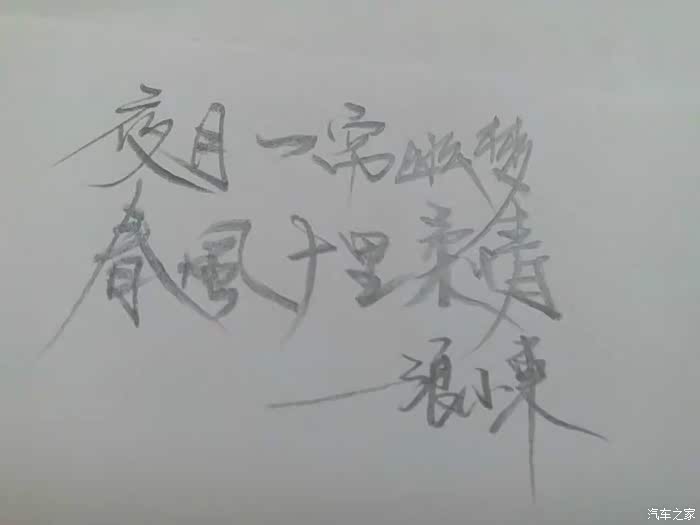 夜月一帘幽夢
春風十里柔情
——浪小東
汽车之家